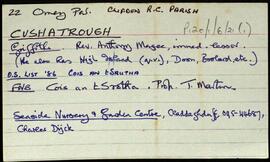 22 Omey Par. CLIFDEN R.C. PARISH
P120/1/6/21(1)
CUSHATROUGH
Griffith Rev. Anthony Magee, immed. lessor.
(He also Rev. Hyl. (q.v.), Doon, etc.)
O.S. LIST '86 COIS AN tSRUTHA
FNB Cois an tSrutha. Prop. T. Martin.
Seaside Nursery & Garden Centre, Claddaghduff, 095-44687,
Charles Dijck